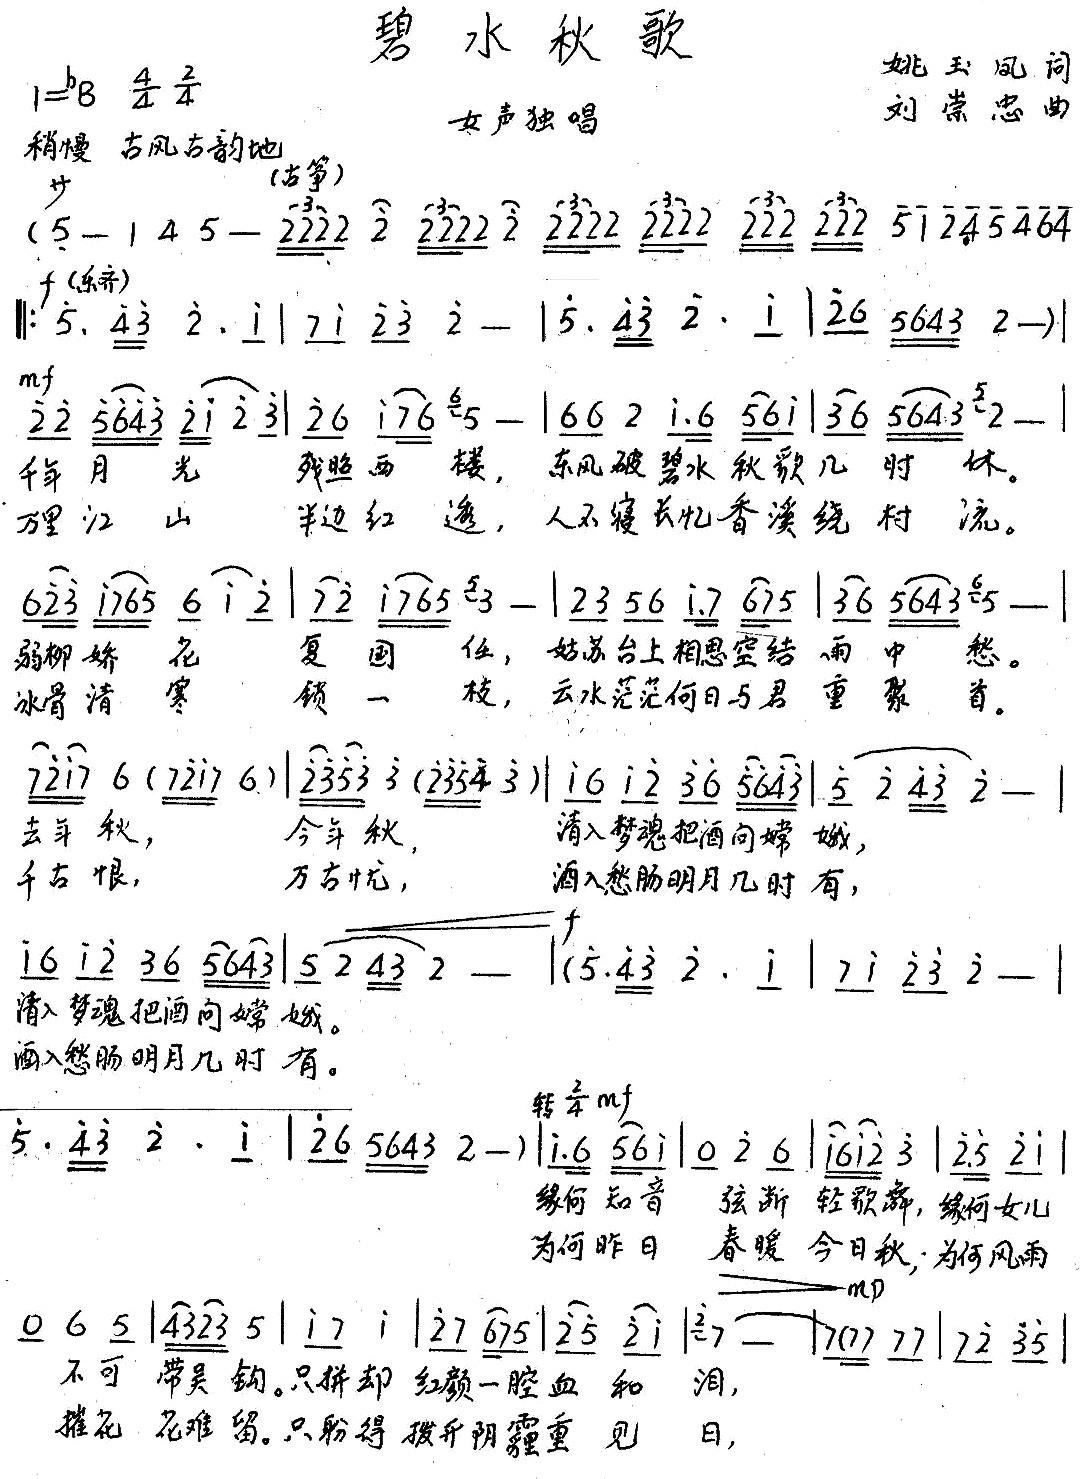 碧水秋歌
姚玉凤 词
1=bB 4/4 2/4
女声独唱
刘崇忠 曲
稍慢 古风古韵地
サ (古筝)
(5 — 1 4 5 — 2222 2 2222 2 2222 2222 222 222 5 1 2 4 5 4 6 4
f (乐齐)
‖: 5. 43 2. 1 | 71 23 2 — | 5. 43 2. 1 | 26 5643 2 —) |
mf
22 5643 21 2 3 | 26 176 5 — | 66 2 1.6 561 | 36 5643 2 — |
千年月光 残照西楼, 东风破碧水秋歌几时休。
万里江山 半边红透, 人不寝长忆香溪绕村流。
623 1765 6 1 2 | 72 1765 3 — | 23 56 1.7 675 | 36 5643 5 — |
弱柳娇花 复国任, 姑苏台上相思空结雨中愁。
冰骨清寒 锁一枝, 云水茫茫何日与君重聚首。
7217 6 (7217 6) | 2353 3 (2354 3) | 16 12 36 5643 | 5 2 43 2 — |
去年秋, 今年秋, 清入梦魂把酒问嫦娥,
千古恨, 万古忧, 酒入愁肠明月几时有,
f
16 12 36 5643 | 5 2 43 2 — | (5. 43 2. 1 | 71 23 2 — |
清入梦魂把酒问嫦娥。
酒入愁肠明月几时有。
转2/4 mf
5. 43 2. 1 | 26 5643 2 —) | 1.6 561 | 0 2 6 | 1612 3 | 2.5 21 |
缘何知音 弦断 轻歌舞, 缘何女儿
为何昨日 春暖 今日秋, 为何风雨
mp
0 6 5 | 4323 5 | 17 1 | 27 675 | 25 21 | 7 — | 7(77 77 | 72 35 |
不可 带吴钩。只拼却 红颜一腔血和泪,
摧花 花难留。只盼得 拨开阴霾重见日,